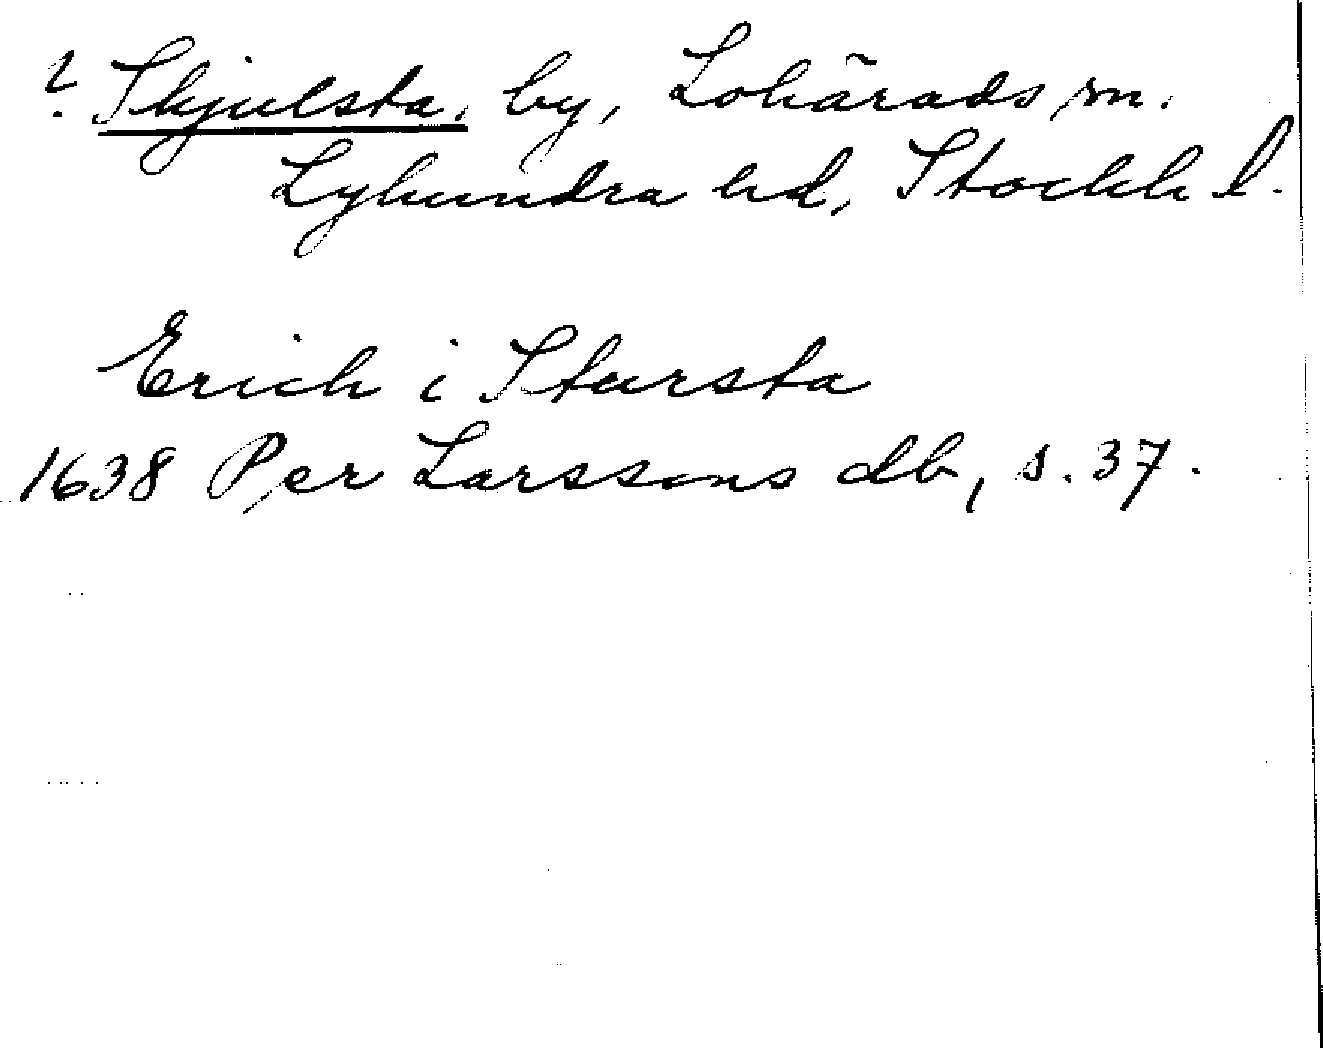 ? Skjulsta, by, Lohärads sn.
Lyhundra hd, Stockh l.
Erich i Stursta
1638 Per Larssons db, s. 37.